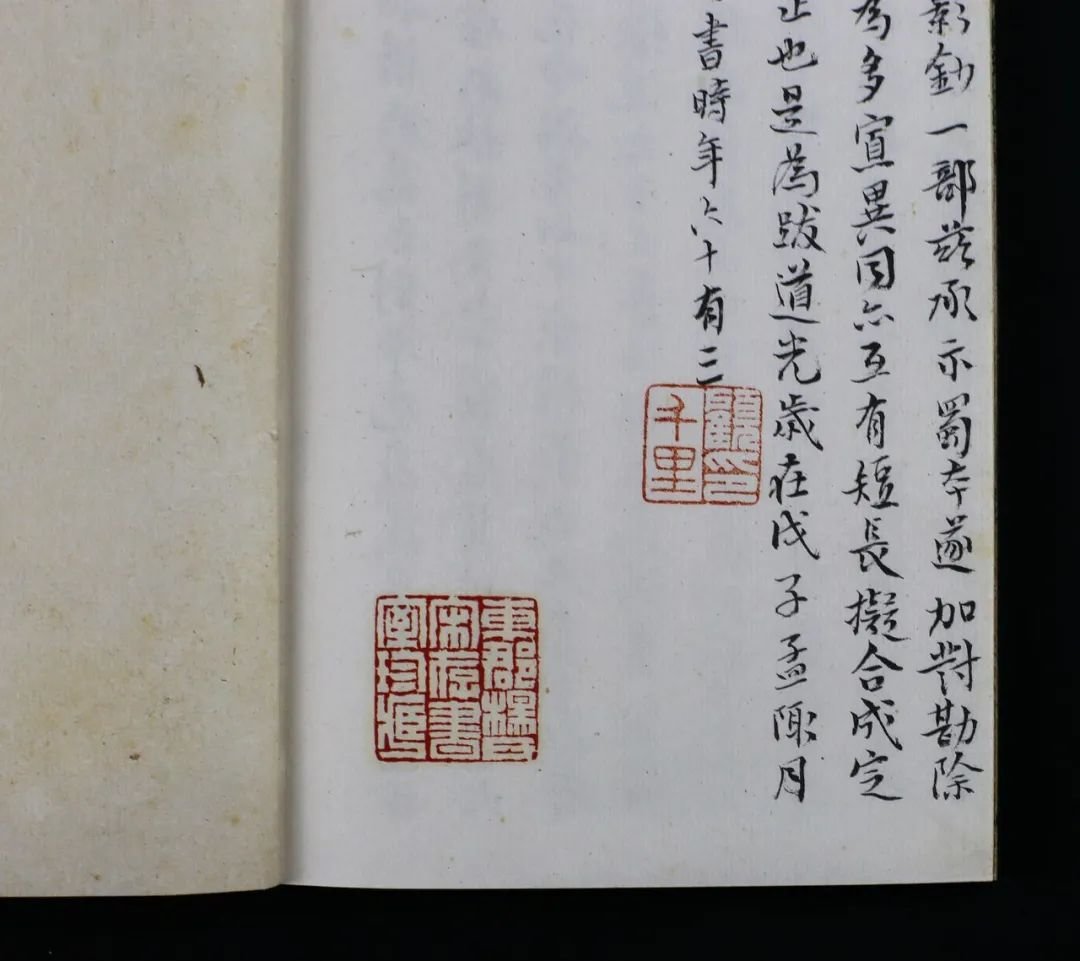 影鈔一部茲承示蜀本遂加對勘除
為多宣異同亦互有短長擬合成定
止也是為跋道光歲在戊子孟陬月
書時年六十有三
顧印千里
東郡楊氏宋存書室珍藏